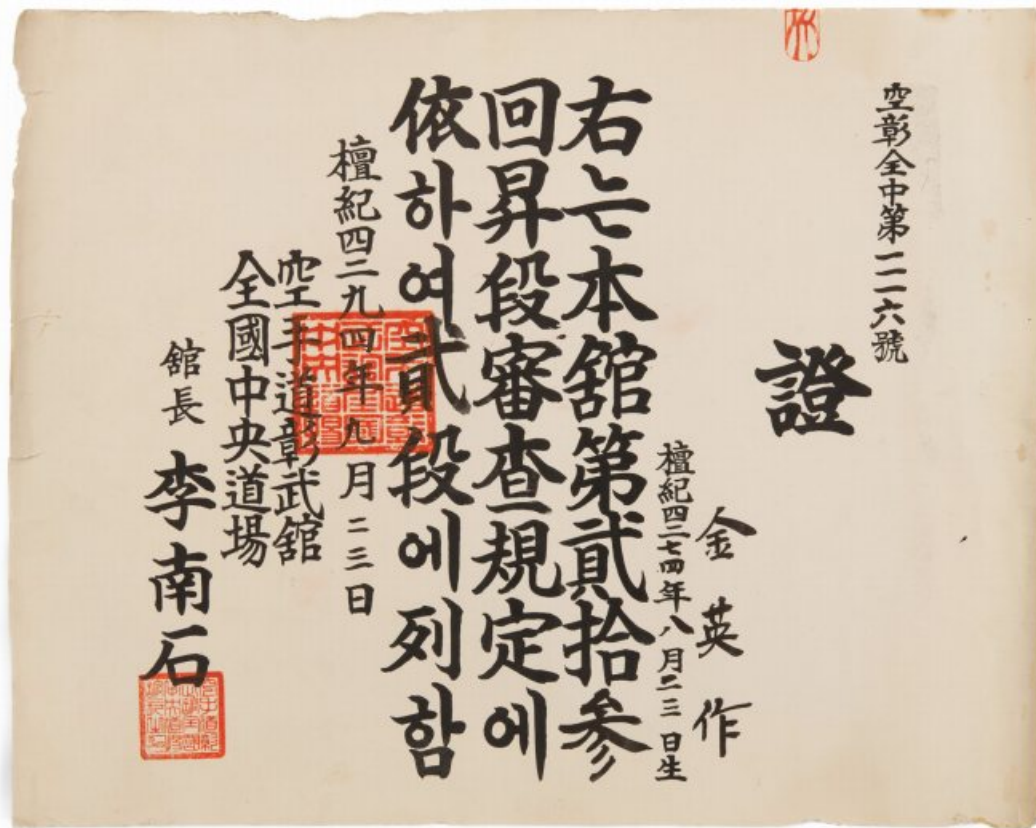 空彰全中第一一六號
證
金英作
檀紀四二七四年八月二三日生
右는本舘第貳拾参
回昇段審査規定에
依하여貳段에列함
檀紀四二九四年九月二三日
空手道彰武舘
全國中央道場
舘長 李南石